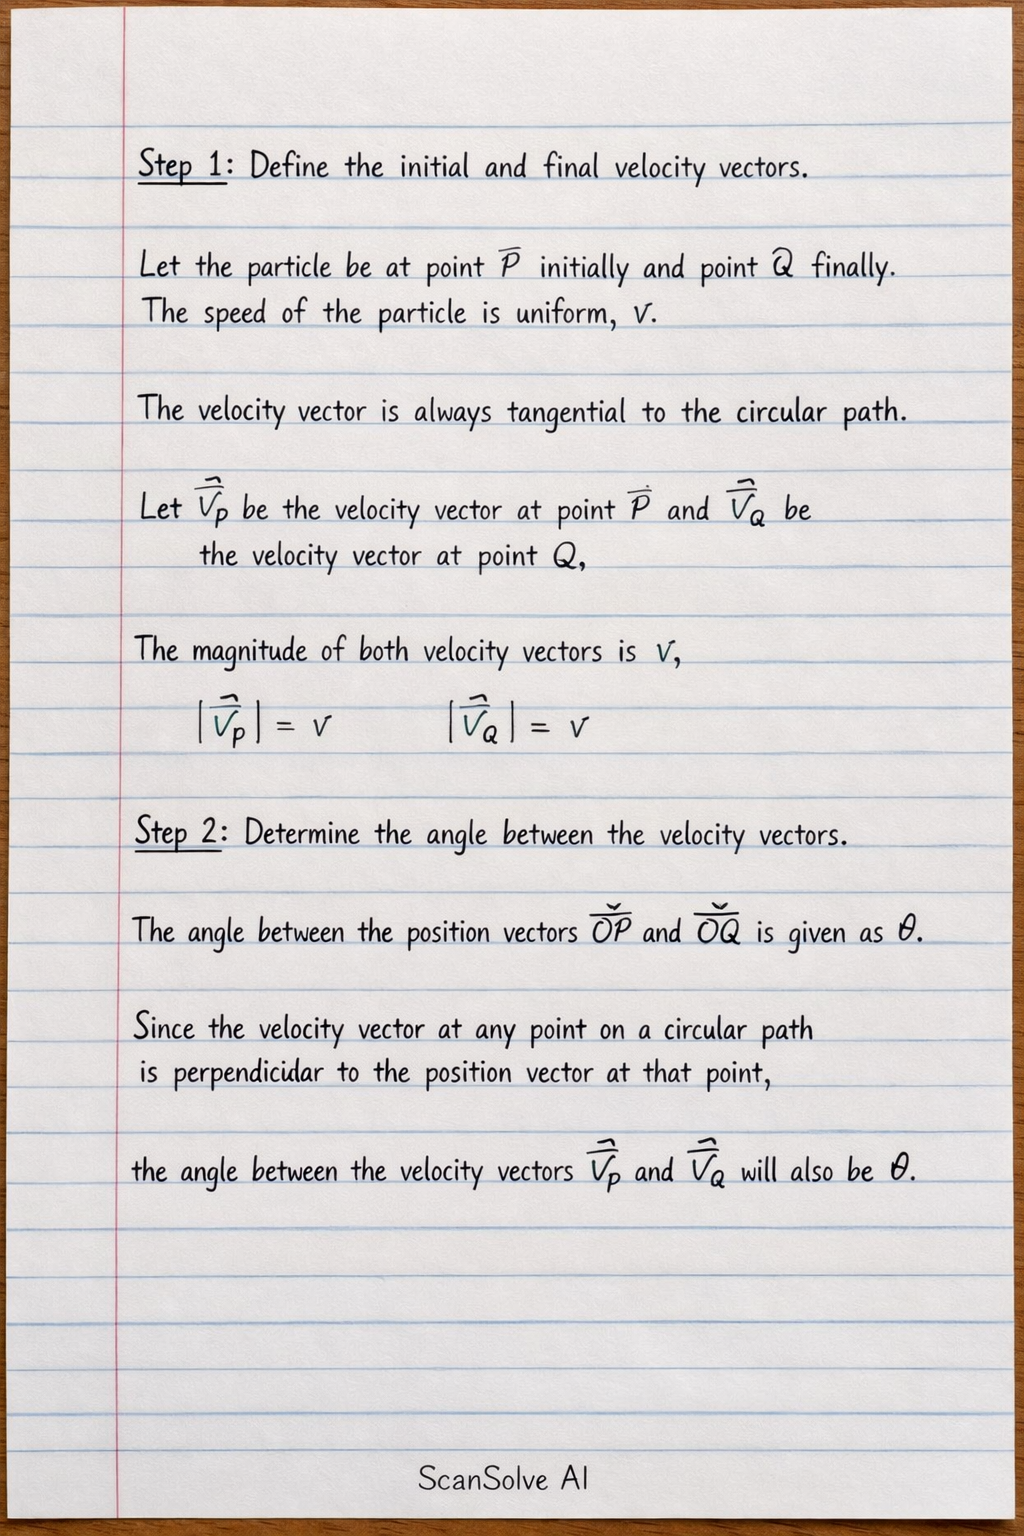 Step 1: Define the initial and final velocity vectors.
Let the particle be at point P̅ initially and point Q̅ finally.
The speed of the particle is uniform, v.
The velocity vector is always tangential to the circular path.
Let V⃗p be the velocity vector at point P̅ and V⃗Q be
the velocity vector at point Q,
The magnitude of both velocity vectors is v,
|V⃗p| = v |V⃗Q| = v
Step 2: Determine the angle between the velocity vectors.
The angle between the position vectors O͞P and O͞Q is given as θ.
Since the velocity vector at any point on a circular path
is perpendicidar to the position vector at that point,
the angle between the velocity vectors V⃗p and V⃗Q will also be θ.
ScanSolve AI